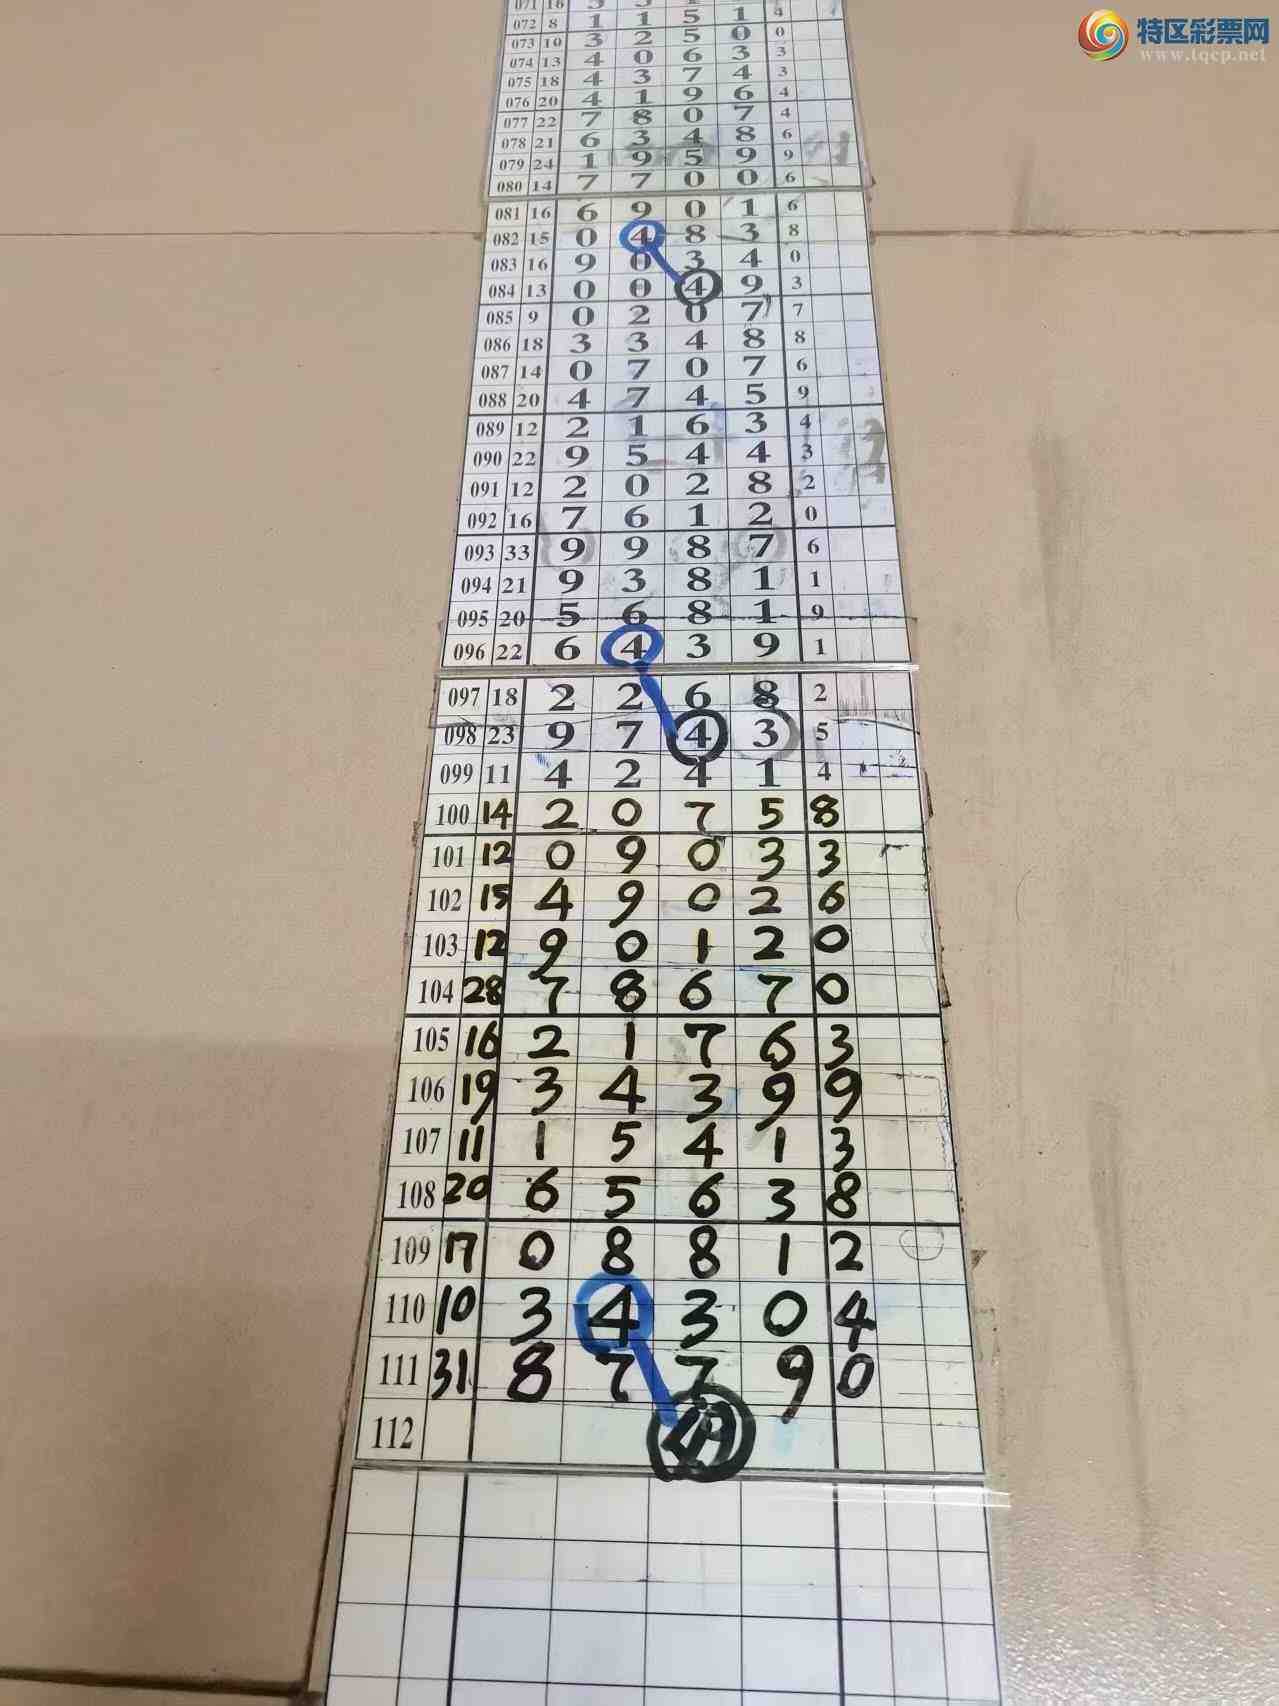 特区彩票网
www.tqcp.net
072 8 1 1 5 1 4
073 10 3 2 5 0 0
074 13 4 0 6 3 3
075 18 4 3 7 4 3
076 20 4 1 9 6 4
077 22 7 8 0 7 4
078 21 6 3 4 8 6
079 24 1 9 5 9 9
080 14 7 7 0 0 6
081 16 6 9 0 1 6
082 15 0 4 8 3 8
083 16 9 0 3 4 0
084 13 0 0 4 9 3
085 9 0 2 0 7 7
086 18 3 3 4 8 8
087 14 0 7 0 7 6
088 20 4 7 4 5 9
089 12 2 1 6 3 4
090 22 9 5 4 4 3
091 12 2 0 2 8 2
092 16 7 6 1 2 0
093 33 9 9 8 7 6
094 21 9 3 8 1 1
095 20 5 6 8 1 9
096 22 6 4 3 9 1
097 18 2 2 6 8 2
098 23 9 7 4 3 5
099 11 4 2 4 1 4
100 14 2 0 7 5 8
101 12 0 9 0 3 3
102 15 4 9 0 2 6
103 12 9 0 1 2 0
104 28 7 8 6 7 0
105 16 2 1 7 6 3
106 19 3 4 3 9 9
107 11 1 5 4 1 3
108 20 6 5 6 3 8
109 17 0 8 8 1 2
110 10 3 4 3 0 4
111 31 8 7 7 9 0
112